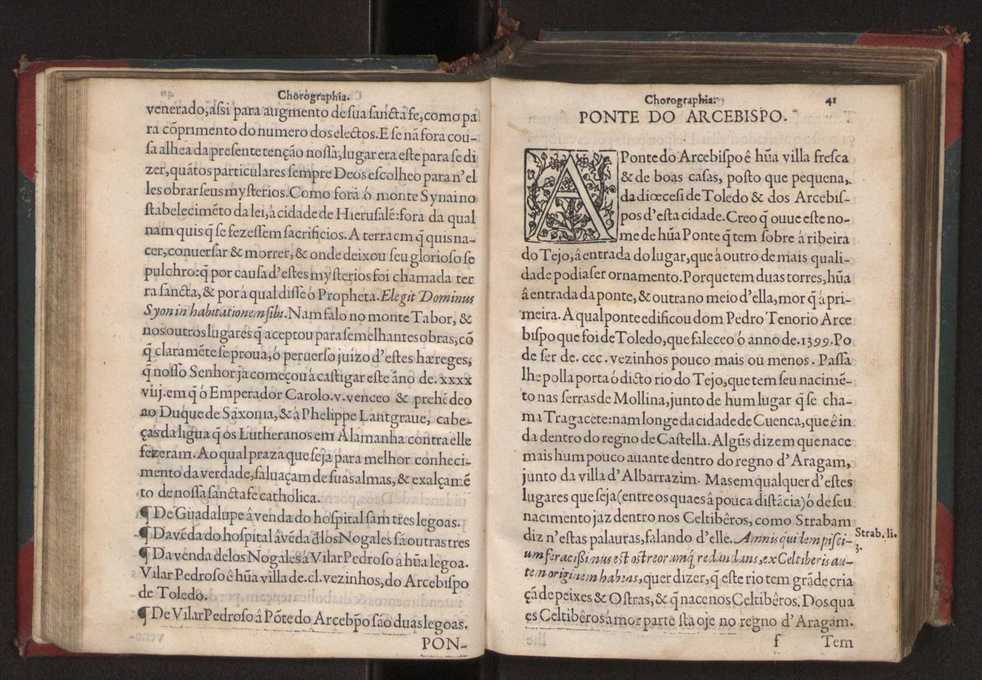 Chorographia.
venerado, assi para augmento de sua sancta fe, como pa
ra cõprimento do numero dos electos. E se nã fora cou-
sa alhea da presente tenção nossa, lugar era este para se di
zer, quãtos particulares sempre Deos escolheo para n'el
les obrar seus mysterios. Como fora ó monte Synai no
stabelecimẽto da lei, á cidade de Hierusalẽ: fora da qual
nam quis q̃ se fezessem sacrificios. A terra em q̃ quis na-
cer, conuersar & morrer, & onde deixou seu glorioso se
pulchro: q̃ por causa d'estes mysterios foi chamada ter
ra sancta, & por á qual disse ó Propheta. Elegit Dominus
Syon in habitationem sibi. Nam falo no monte Tabor, &
nos outros lugares q̃ aceptou para semelhantes obras, cõ
q̃ claramẽte se proua, ó peruerso juizo d'estes hæreges,
q̃ nosso Senhor ja começou á castigar este ãno de. xxxx
viij. em q̃ ó Emperador Carolo. v. venceo & prehẽdeo
ao Duque de Saxonia, & á Phelippe Lantgraue, cabe-
ças da ligua q̃ ós Lutheranos em Alamanha contra elle
fezeram. Ao qual praza que seja para melhor conheci-
mento da verdade, saluaçam de suas almas, & exalçamẽ
to de nossa sancta fe catholica.
¶ De Guadalupe â venda do hospital sam tres legoas.
¶ Da vẽda do hospital â vẽda dlos Nogales sã outras tres
¶ Da venda delos Nogales á Vilar Pedroso a hũa legoa.
Vilar Pedroso ê hũa villa de. cl. vezinhos, do Arcebispo
de Toledo.
¶ De Vilar Pedroso â Põte do Arcebp̃o são duas legoas.
PON-
Chorographia.
41
PONTE DO ARCEBISPO.
A Ponte do Arcebispo ê hũa villa fresca
& de boas casas, posto que pequena,
da diœcesi de Toledo & dos Arcebis-
pos d'esta cidade. Creo q̃ ouue este no-
me de hũa Ponte q̃ tem sobre á ribeira
do Tejo, â entrada do lugar, que â outro de mais quali-
dade podia ser ornamento. Porque tem duas torres, hũa
â entrada da ponte, & outra no meio d'ella, mor q̃ á pri-
meira. A qual ponte edificou dom Pedro Tenorio Arce
bispo que foi de Toledo, que faleceo ó anno de. 1399. Po
de ser de. ccc. vezinhos pouco mais ou menos. Passa
lhe polla porta ó dicto rio do Tejo, que tem seu nacimẽ-
to nas serras de Mollina, junto de hum lugar q̃ se cha-
ma Tragacete: nam longe da cidade de Cuenca, que ê in
da dentro do regno de Castella. Algũs dizem que nace
mais hum pouco auante dentro do regno d'Aragam,
junto da villa d'Albarrazim. Mas em qualquer d'estes
lugares que seja (entre os quaes â pouca distãcia) ó de seu
nacimento jaz dentro nos Celtibêros, como Strabam
diz n'estas palauras, falando d'elle. Amnis quidem pisci-
um feracißimus est ostreorumq; redundans, ex Celtiberis au-
tem originem habens, quer dizer, q̃ este rio tem grãde cria
çã de peixes & Ostras, & q̃ nace nos Celtibêros. Dos qua
es Celtibêros á mor parte sta oje no regno d'Aragam.
Strab. li.
3.
f Tem